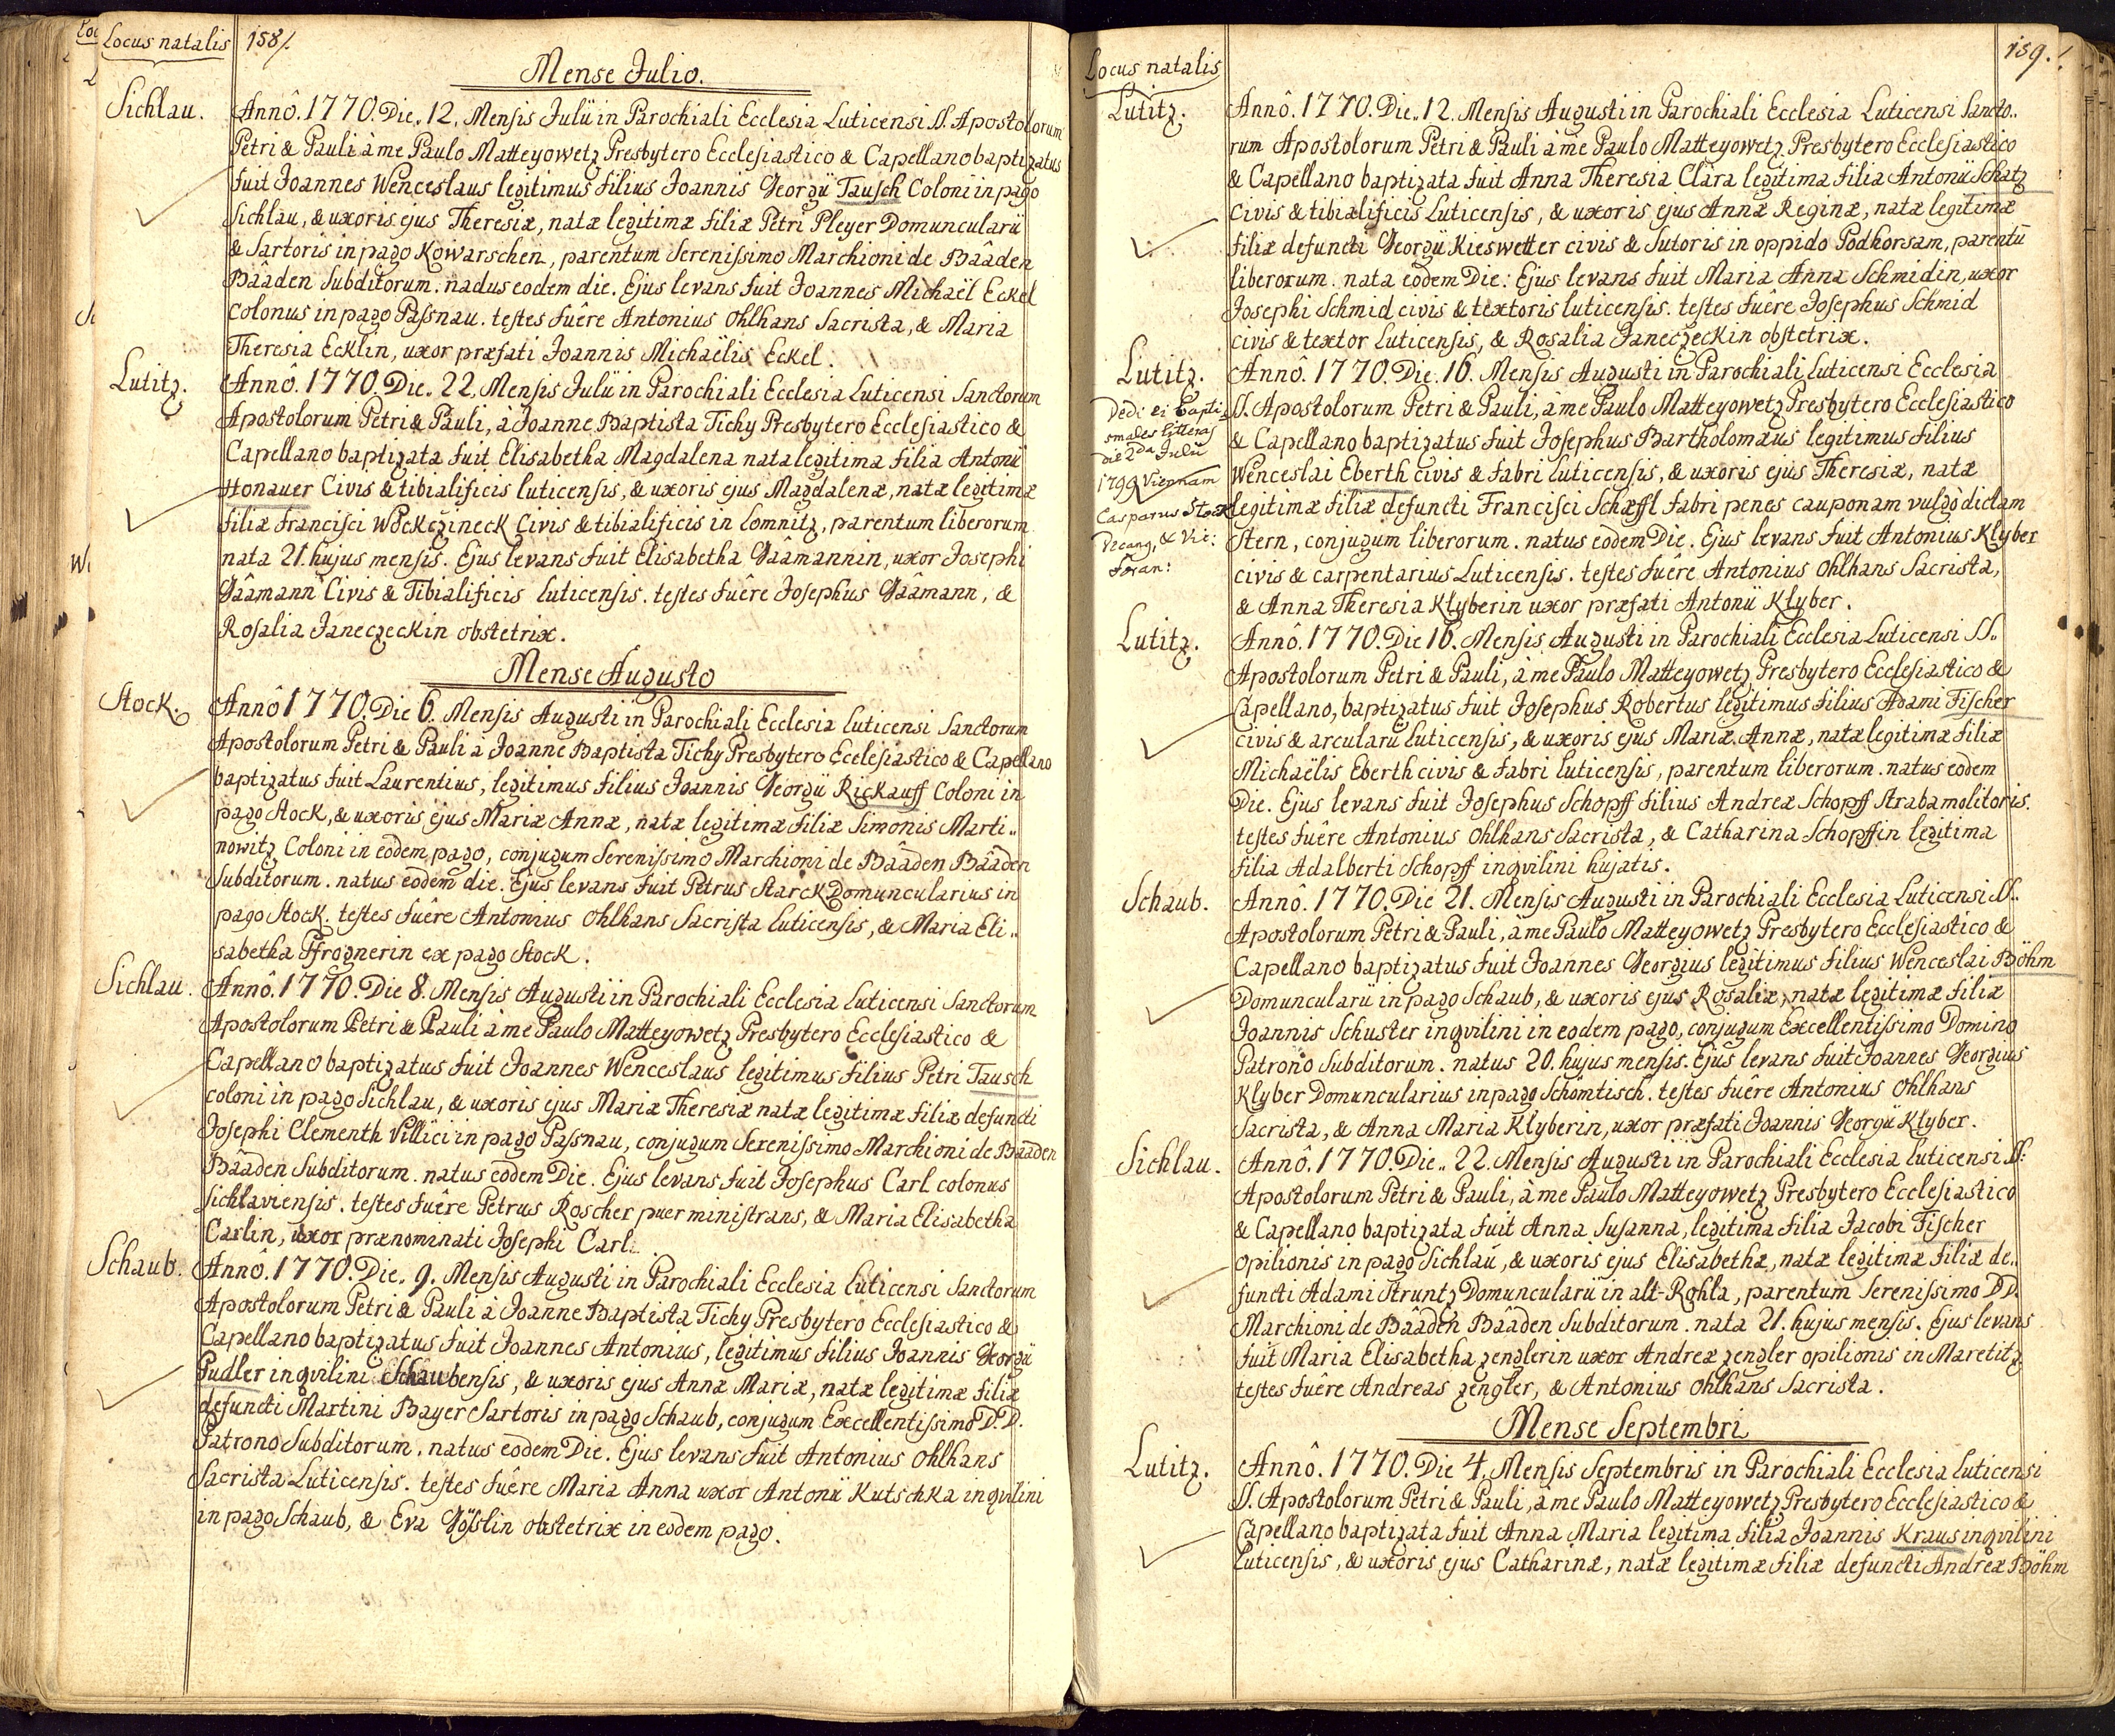 Locus natalis 158/.
Mense Julio.
Sichlau.
Annô. 1770. Die. 12. Mensis Julii in Parochiali Ecclesia Luticensi SS. Apostolorum
Petri & Pauli à me Paulo Matteyowetz Presbytero Ecclesiastico & Capellano baptizatus
fuit Joannes Wenceslaus legitimus filius Joannis Georgii Tausch Coloni in pago
Sichlau, & uxoris ejus Theresiæ, natæ legitimæ filiæ Petri Pleyer Domuncularii
& Sartoris in pago Kowarschen, parentum Serenissimo Marchioni de Bââden
Bââden Subditorum. nadus eodem die. Ejus levans fuit Joannes Michaël Eckel
Colonus in pago Passnau. testes fuêre Antonius Ohlhans Sacrista, & Maria
Theresia Ecklin, uxor præfati Joannis Michaëlis Eckel.
Lutitz.
Annô. 1770. Die. 22. Mensis Julii in Parochiali Ecclesia Luticensi Sanctorum
Apostolorum Petri & Pauli, à Joanne Baptista Tichy Presbytero Ecclesiastico &
Capellano baptizata fuit Elisabetha Magdalena nata legitima filia Antonii
Honauer Civis & tibialificis luticensis, & uxoris ejus Magdalenæ, natæ legitimæ
filiæ Francisci Wockczineck Civis & tibialificis in Lomnitz, parentum liberorum.
nata 21. hujus mensis. Ejus levans fuit Elisabetha Gââmannin, uxor Josephi
Gââmann Civis & Tibialificis luticensis. testes fuêre Josephus Gââmann, &
Rosalia Janeczeckin obstetrix.
Mense Augusto
Stock.
Annô 1770. Die 6. Mensis Augusti in Parochiali Ecclesia luticensi Sanctorum
Apostolorum Petri & Pauli a Joanne Baptista Tichy Presbytero Ecclesiastico & Capellano
baptizatus fuit Laurentius, legitimus filius Joannis Georgii Rickauff Coloni in
pago Stock, & uxoris ejus Mariæ Annæ, natæ legitimæ filiæ Simonis Marti..
nowitz Coloni in eodem pago, conjugum Serenissimo Marchioni de Bââden Bââden
Subditorum. natus eodem die. Ejus levans fuit Petrus Starck Domuncularius in
pago Stock. testes fuêre Antonius Ohlhans Sacrista luticensis, & Maria Eli..
sabetha Pfrognerin ex pago Stock.
Sichlau.
Annô. 1770. Die 8. Mensis Augusti in Parochiali Ecclesia luticensi Sanctorum
Apostolorum Petri & Pauli à me Paulo Matteyowetz Presbytero Ecclesiastico &
Capellano baptizatus fuit Joannes Wenceslaus legitimus filius Petri Tausch
coloni in pago Sichlau, & uxoris ejus Mariæ Theresiæ natæ legitimæ filiæ defuncti
Josephi Clementh Villici in pago Passnau, conjugum Serenissimo Marchioni de Bââden
Bââden Subditorum. natus eodem Die. Ejus levans fuit Josephus Carl colonus
sichlaviensis. testes fuêre Petrus Roscher puer ministrans, & Maria Elisabetha
Carlin, uxor prænominati Josephi Carl.
Schaub.
Annô. 1770. Die. 9. Mensis Augusti in Parochiali Ecclesia luticensi Sanctorum
Apostolorum Petri & Pauli à Joanne Baptista Tichy Presbytero Ecclesiastico &
Capellano baptizatus fuit Joannes Antonius, legitimus filius Joannis Georgii
Pudler inqvilini Schaubensis, & uxoris ejus Annæ Mariæ, natæ legitimæ filiæ
defuncti Martini Bayer Sartoris in pago Schaub, conjugum Excellentissimo D.D.
Patrono Subditorum. natus eodem Die. Ejus levans fuit Antonius Ohlhans
Sacrista Luticensis. testes fuêre Maria Anna uxor Antonii Kutschka inqvilini
in pago Schaub, & Eva Göslin obstetrix in eodem pago.
Locus natalis 159./
Lutitz.
Annô. 1770. Die. 12. Mensis Augusti in Parochiali Ecclesia Luticensi Sancto..
rum Apostolorum Petri & Pauli à me Paulo Matteyowetz Presbytero Ecclesiastico
& Capellano baptizata fuit Anna Theresia Clara legitima filia Antonii Schatz
Civis & tibialificis Luticensis, & uxoris ejus Annæ Reginæ, natæ legitimæ
filiæ defuncti Georgii Kieswetter civis & Sutoris in oppido Podhorsam, parentū
liberorum. nata eodem Die: Ejus levans fuit Maria Anna Schmidin, uxor
Josephi Schmid civis & textoris luticensis. testes fuêre Josephus Schmid
civis & textor Luticensis, & Rosalia Janeczeckin obstetrix.
Lutitz.
Dedi ei Bapti
smales litteras
die 2da Julii
1799 Viennam
Casparus Stock
Decang, & Vic:
Foran:
Annô. 1770. Die. 16. Mensis Augusti in Parochiali luticensi Ecclesia
SS. Apostolorum Petri & Pauli, à me Paulo Matteyowetz Presbytero Ecclesiastico
& Capellano baptizatus fuit Josephus Bartholomæus legitimus filius
Wenceslai Eberth civis & fabri luticensis, & uxoris ejus Theresiæ, natæ
legitimæ filiæ defuncti Francisci Schæffl fabri penes cauponam vulgo dictam
Stern, conjugum liberorum. natus eodem Die. Ejus levans fuit Antonius Klyber
civis & carpentarius Luticensis. testes fuêre Antonius Ohlhans Sacrista,
& Anna Theresia Klyberin uxor præfati Antonii Klyber.
Lutitz.
Annô. 1770. Die 16. Mensis Augusti in Parochiali Ecclesia Luticensi SS..
Apostolorum Petri & Pauli, à me Paulo Matteyowetz Presbytero Ecclesiastico &
Capellano, baptizatus fuit Josephus Robertus legitimus filius Adami Fischer
civis & arcularii luticensis, & uxoris ejus Mariæ Annæ, natæ legitimæ filiæ
Michaëlis Eberth civis & fabri luticensis, parentum liberorum. natus eodem
Die. Ejus levans fuit Josephus Schopff filius Andreæ Schopff Strabamolitoris.
testes fuêre Antonius Ohlhans Sacrista, & Catharina Schopffin legitima
filia Adalberti Schopff inqvilini hujatis.
Schaub.
Annô. 1770. Die 21. Mensis Augusti in Parochiali Ecclesia Luticensi SS..
Apostolorum Petri & Pauli, à me Paulo Matteyowetz Presbytero Ecclesiastico &
Capellano baptizatus fuit Joannes Georgius legitimus filius Wenceslai Böhm
Domuncularii in pago Schaub, & uxoris ejus Rosaliæ, natæ legitimæ filiæ
Joannis Schuster inqvilini in eodem pago, conjugum Excellentissimo Domino
Patrono Subditorum. natus 20. hujus mensis. Ejus levans fuit Joannes Georgius
Klyber Domuncularius in pago Schömtisch. testes fuêre Antonius Ohlhans
Sacrista, & Anna Maria Klyberin, uxor præfati Joannis Georgii Klyber.
Sichlau.
Annô. 1770. Die.. 22. Mensis Augusti in Parochiali Ecclesia luticensi SS:
Apostolorum Petri & Pauli, à me Paulo Matteyowetz Presbytero Ecclesiastico
& Capellano baptizata fuit Anna Susanna, legitima filia Jacobi Fischer
opilionis in pago Sichlau, & uxoris ejus Elisabethæ, natæ legitimæ filiæ de..
functi Adami Struntz Domuncularii in alt-Rohla, parentum Serenissimo DD.
Marchioni de Bââden Bââden Subditorum. nata 21. hujus mensis. Ejus levans
fuit Maria Elisabetha zenglerin uxor Andreæ zengler opilionis in Maretitz
testes fuêre Andreas zengler, & Antonius Ohlhans Sacrista.
Mense Septembri
Lutitz.
Annô. 1770. Die 4. Mensis Septembris in Parochiali Ecclesia Luticensi
SS. Apostolorum Petri & Pauli, à me Paulo Matteyowetz Presbytero Ecclesiastico &
Capellano baptizata fuit Anna Maria legitima filia Joannis Kraus inqvilini
Luticensis, & uxoris ejus Catharinæ, natæ legitimæ filiæ defuncti Andreæ Böhm